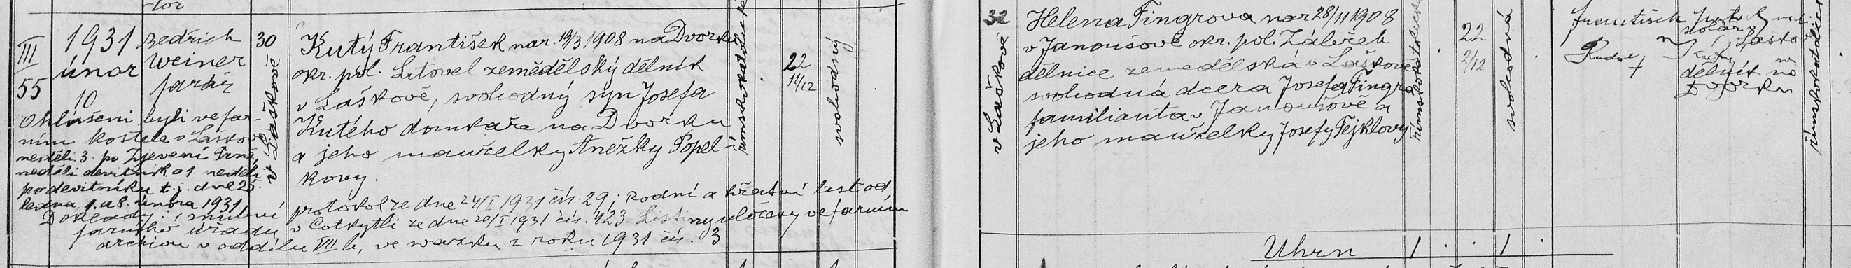 III
55
1931
únor
10
Bedřich
Weiner
farář
30
v Laškově
Kutý František nar. 19/3 1908 na Dvorku
okr. pol. Litovel zemědělský dělník
v Laškově, svobodný syn Josefa
Kutého domkaře na Dvorku
a jeho manželky Anežky Popel-
kovy.
římskokatolické
22
14/12
svobodný
Ohlášeni byli ve far-
ním kostele v Laškově
neděli 3. po Zjevení Páně,
neděli devítník a 1. neděli
po devítníku t. j. dne 25.
ledna 1. a 8. února 1931.
Doklady: smluvní
protokol ze dne 24/I 1931 čís. 29; rodní a křestní list od
farního úřadu v Cotkytli ze dne 20/I 1931 čís. 423. Listiny uloženy ve farním
archivu v oddílu VIII b, ve svazku z roku 1931 čís. 3
32
v Laškově
Helena Fingrova nar 28/11 1908
v Janoušově okr. pol. Zábřeh
dělnice zemědělská v Laškově
svobodná dcera Josefa Fingra
familianta v Janoušově a
jeho manželky Josefy Fejklovy
římskokatolické
22
2/12
svobodná
František
Rudolf
Kutý
dělník na
Dvorku
římskokatolické
Uhrn 1 . . 1 .